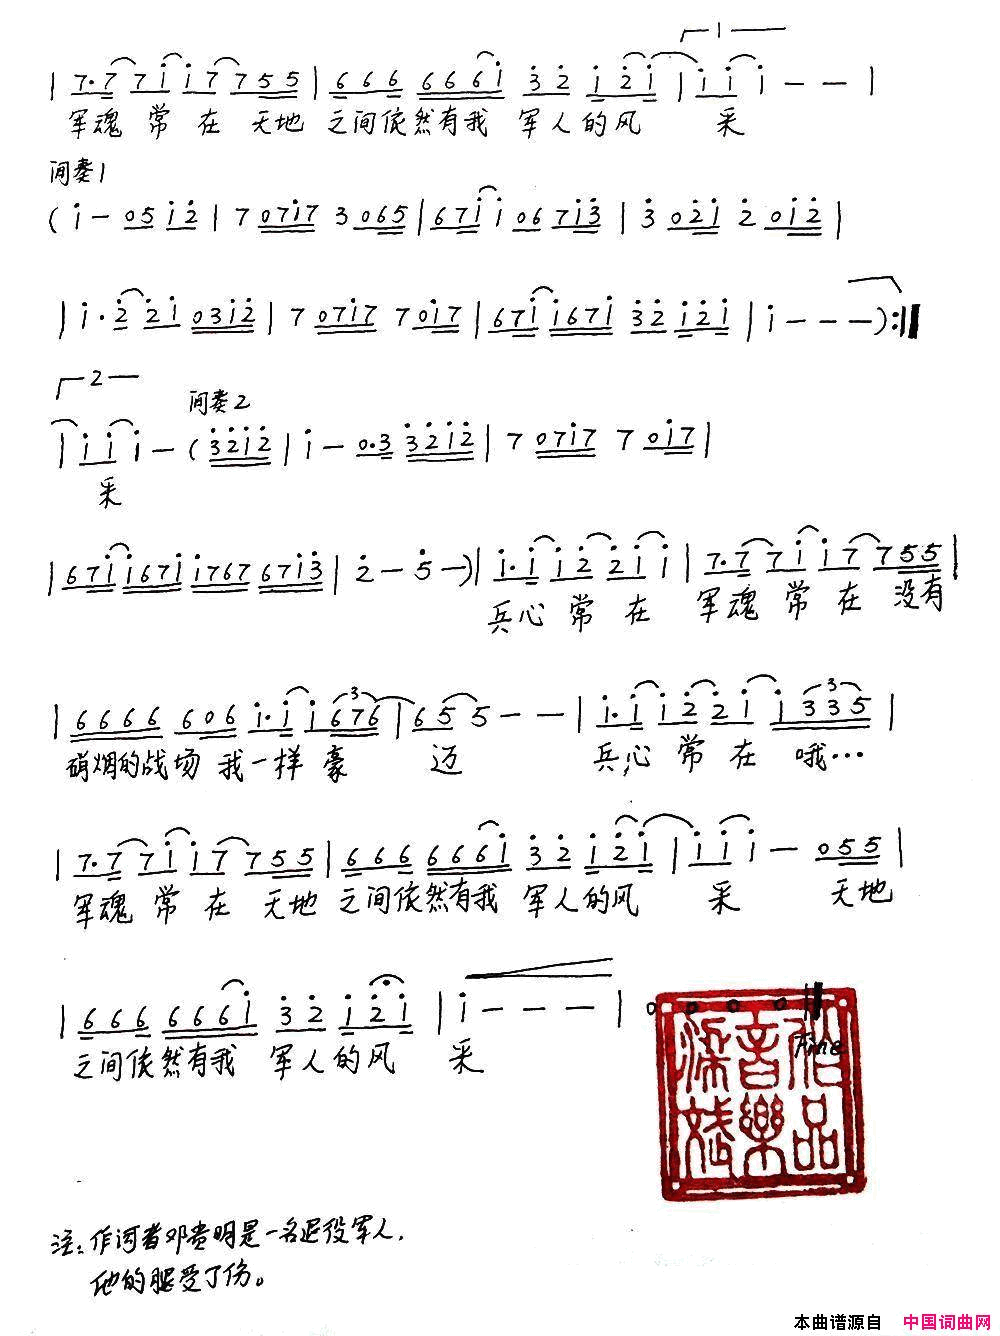 1
| 7·7 7i i7 755 | 666 666i 32 i2i | ii i - - |
军魂 常 在 天地 之间依然有我 军人的风 采
间奏1
( i - 05 i2 | 7 07i7 3 065 | 67i i 06 7i3 | 3 02i 2 0i2 |
| i·2 2i 03i2 | 7 07i7 7 0i7 | 67i i67i 32 i2i | i - - - ) :||
2
间奏2
| ii i - ( 32i2 | i - 0·3 32i2 | 7 07i7 7 0i7 |
采
| 67i i67i i767 67i3 | 2 - 5 - ) | i·i i2 2i i | 7·7 7i i7 755 |
兵心 常 在 军魂 常 在 没有
3 3
| 6666 606 i·i i676 | 65 5 - - | i·i i2 2i i335 |
硝烟的战场 我一样豪 迈 兵心 常 在 哦…
| 7·7 7i i7 755 | 666 666i 32 i2i | ii i - 055 |
军魂 常 在 天地 之间依然有我 军人的风 采 天地
| 666 666i 32 i2i | i - - - | 0 0 0 0 ||
之间依然有我 军人的风 采 Fine
音樂 品
注：作词者邓贵明是一名退役军人，
他的腿受了伤。
本曲谱源自 中国词曲网